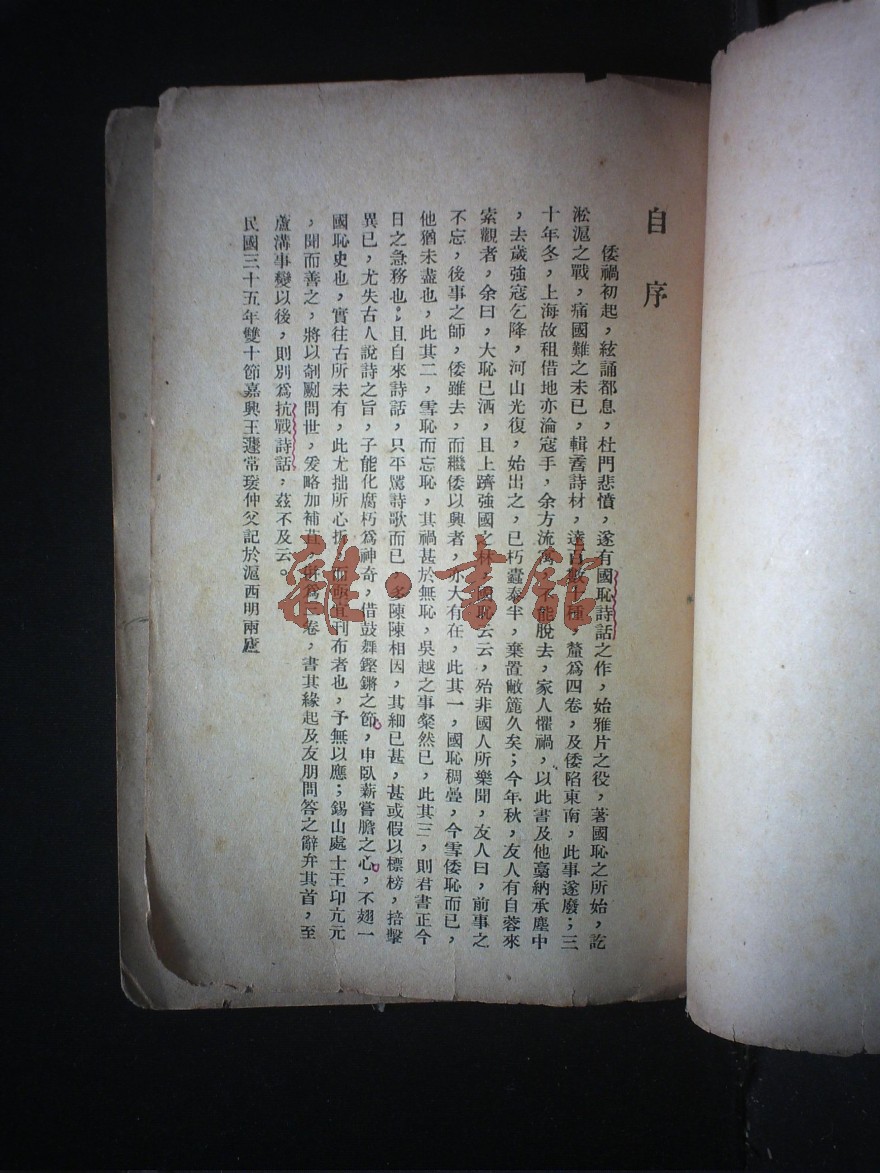 自序
倭禍初起，絃誦都息，杜門悲憤，遂有國恥詩話之作，始雅片之役，著國恥之所始，訖
淞滬之戰，痛國難之未已，輯舊詩材，達百數十種，釐爲四卷，及倭陷東南，此事遂廢；三
十年冬，上海故租借地亦淪寇手，余方流寓，不能脫去，家人懼禍，以此書及他藁納承塵中
，去歲強寇乞降，河山光復，始出之，已朽蠹泰半，棄置敝簏久矣；今年秋，友人有自蓉來
索觀者，余曰，大恥已洒，且上躋強國之林，國恥云云，殆非國人所樂聞，友人曰，前事之
不忘，後事之師，倭雖去，而繼倭以興者，亦大有在，此其一，國恥稠疊，今雪倭恥而已，
他猶未盡也，此其二，雪恥而忘恥，其禍甚於無恥，吳越之事粲然已，此其三，則君書正今
日之急務也。且自來詩話，只平騭詩歌而已，多陳陳相因，其細已甚，甚或假以標榜，掊擊
異已，尤失古人說詩之旨，子能化腐朽爲神奇，借鼓舞鏗鏘之節，申臥薪嘗膽之心，不翅一
國恥史也，實往古所未有，此尤拙所心折，而亟宜刊布者也，予無以應；錫山處士王印亢元
，聞而善之，將以剞劂問世，爰略加補苴，併爲一卷，書其緣起及友朋問答之辭弁其首，至
蘆溝事變以後，則別爲抗戰詩話，茲不及云。
民國三十五年雙十節嘉興王蘧常瑗仲父記於滬西明兩廬
雜·書館